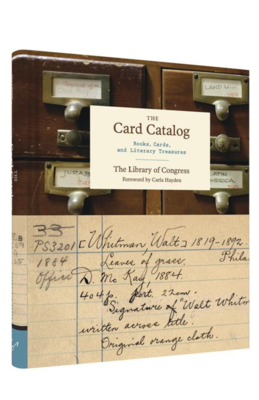 THE
Card Catalog
Books, Cards,
and Literary Treasures
The Library of Congress
Foreword by Carla Hayden
33
PS3201 [Whitman Walt] 1819-1892.
1884 Leaves of grass. Phila.
Office D. McKay, 1884.
404 p. port. 22cm.
"Signature of "Walt Whitm
written across title.
Original orange cloth.